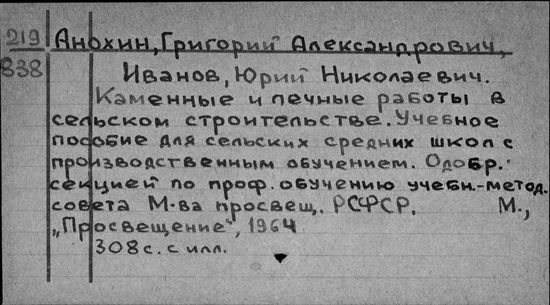 219 Анохин, Григорий Александрович,
838 Иванов, Юрий Николаевич.
Каменные и печные работы в
сельском строительстве. Учебное
пособие для сельских средних школ с
производственным обучением. Одобр.
секцией по проф. обучению учебн.-метод.
совета М-ва просвещ. РСФСР. М.,
„Просвещение", 1964
308 с. с илл.